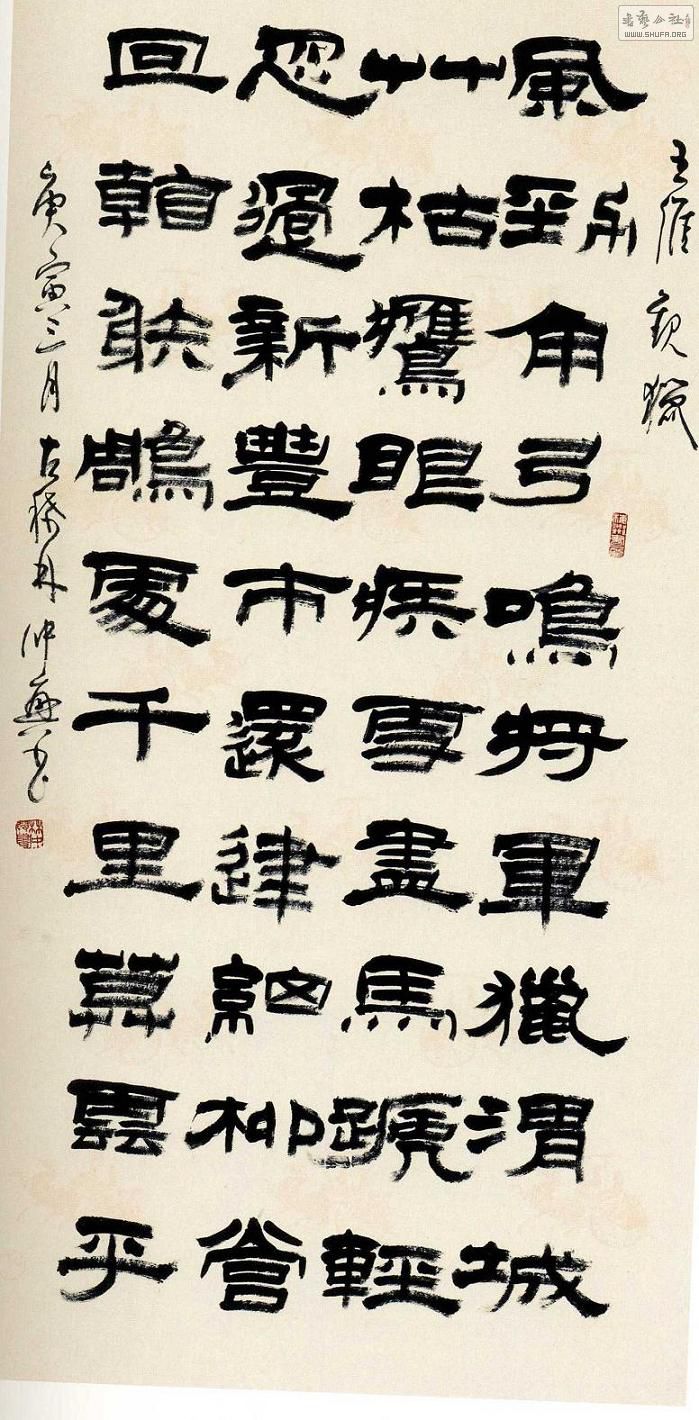 書藝公社
WWW.SHUFA.ORG
王維 觀獵
風勁角弓鳴將軍獵渭城
艸枯鷹眼疾雪盡馬蹏輕
忽過新豐市還歸細柳營
回看䠶鵰處千里莫雲平
庚寅三月古稀林仲興書